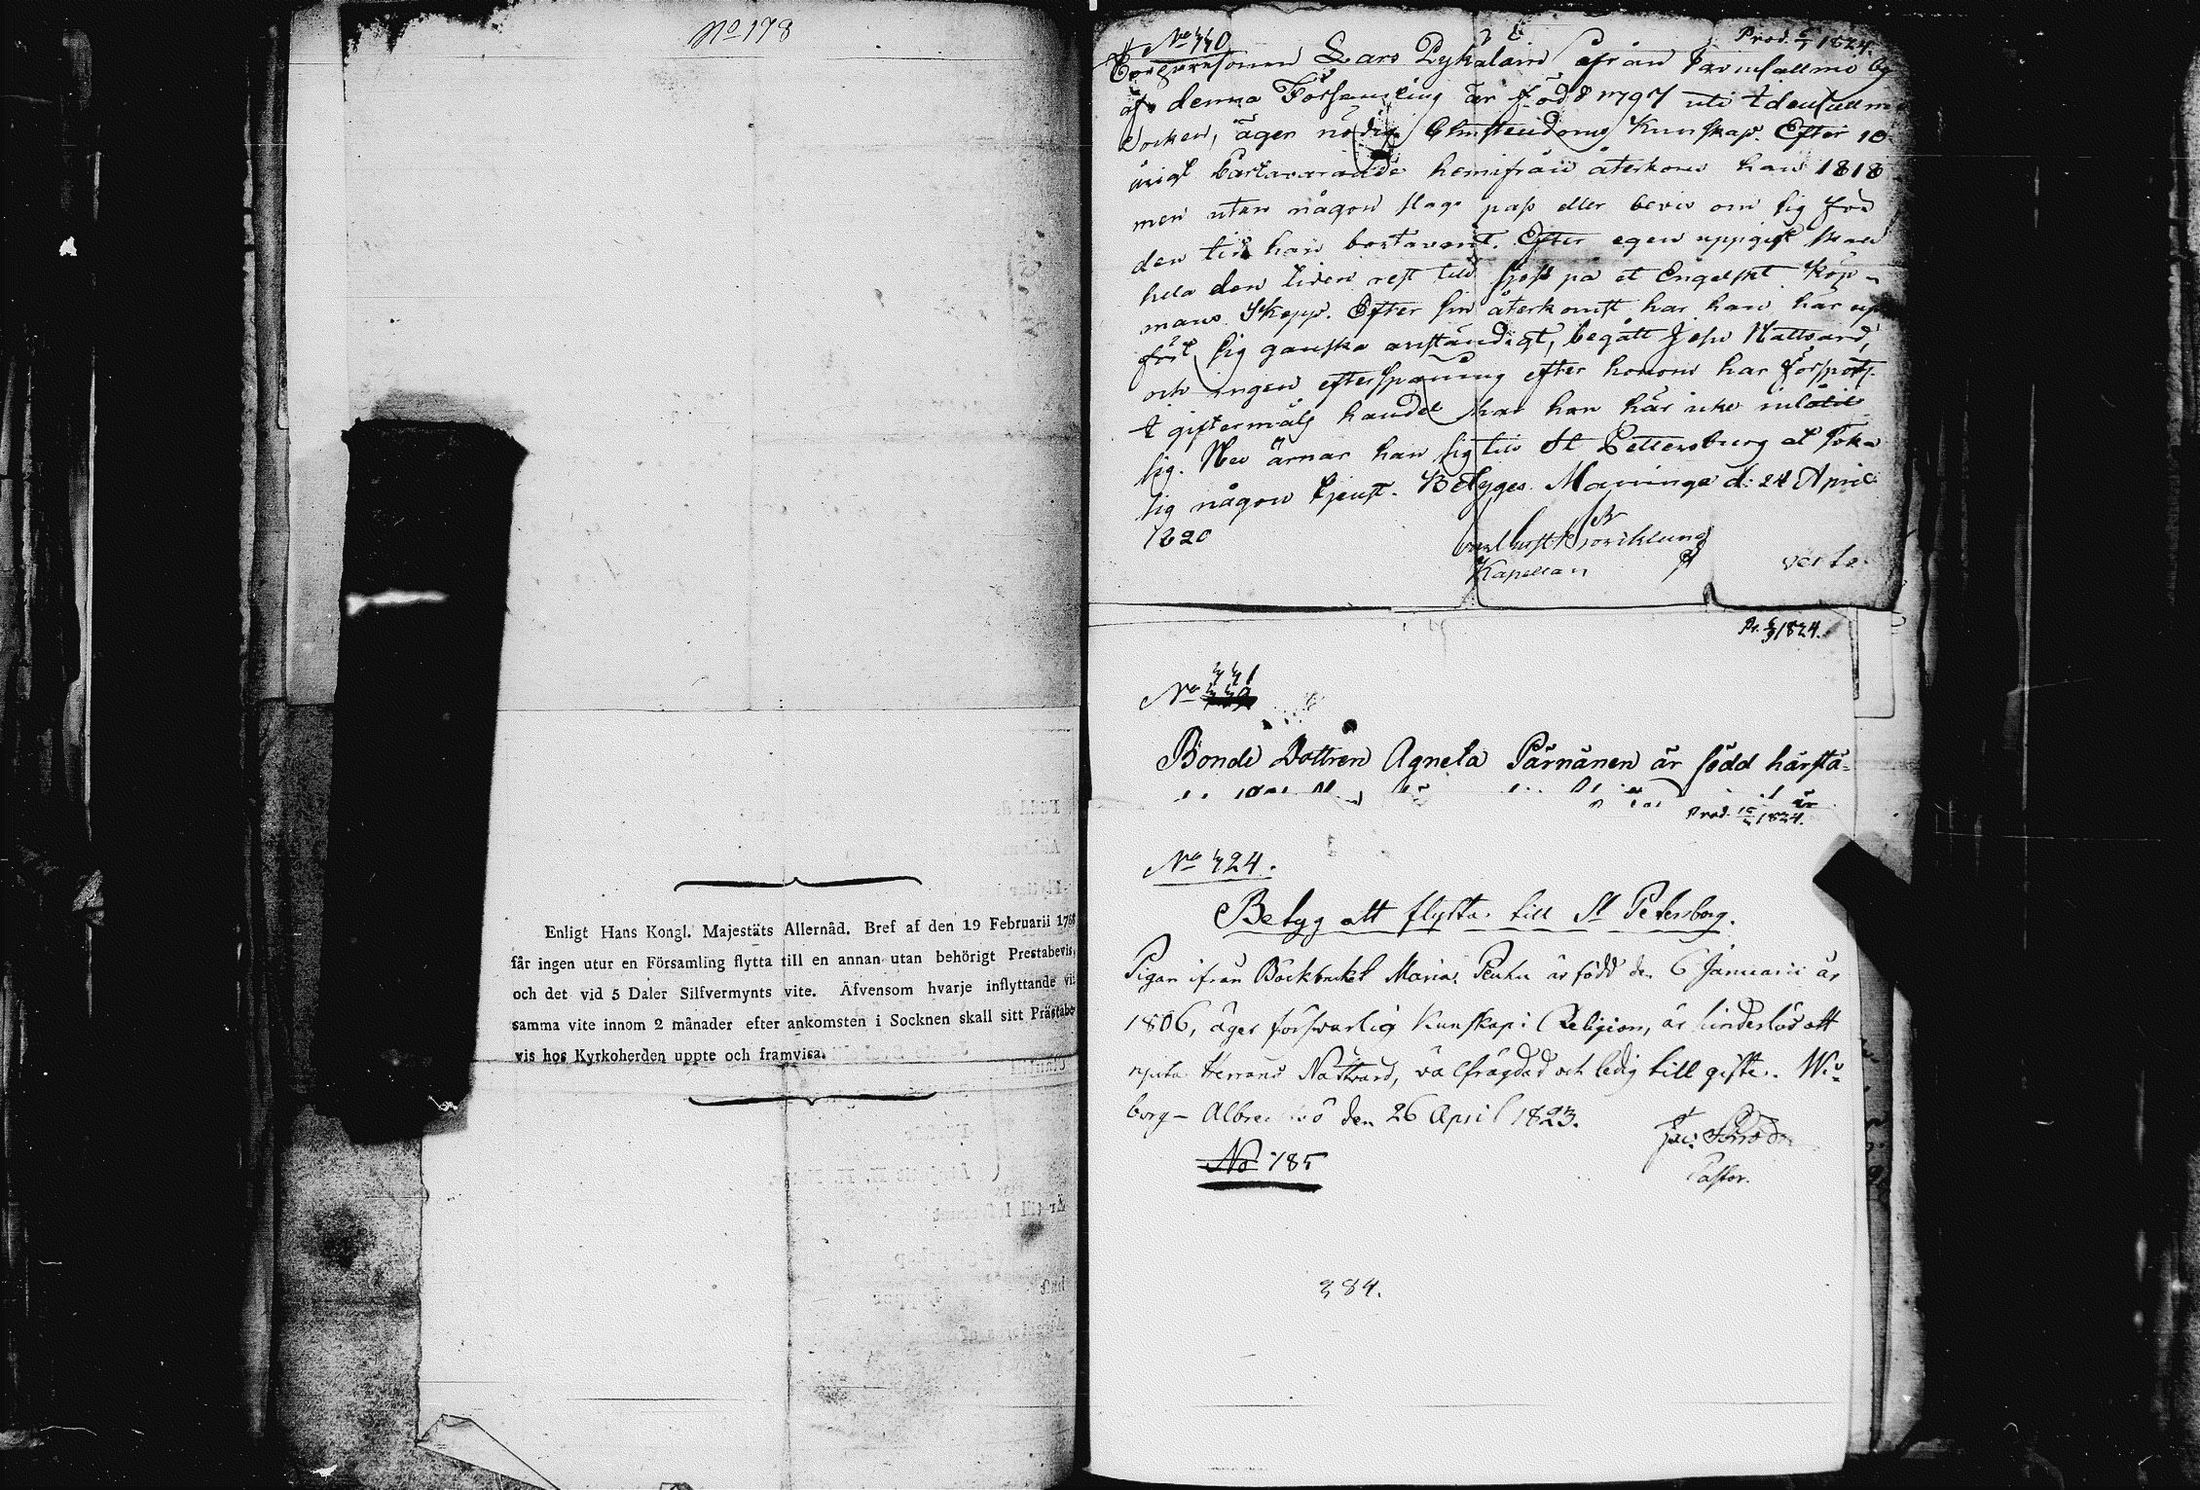 No 178
Enligt Hans Kongl. Majestäts Allernåd. Bref af den 19 Februarii 1768
får ingen utur en Församling flytta till en annan utan behörigt Prestabevis,
och det vid 5 Daler Silfvermynts vite. Äfvensom hvarje inflyttande vi
samma vite innom 2 månader efter ankomsten i Socknen skall sitt Prästabe-
vis hos Kyrkoherden uppte och framvisa.
No 440 Prod. 1824.
Lars från by
af denna Församling är född 1797 uti
Socken, äger nödig Christendoms Kunskap. Efter 10
årigt bortavarande hemifrån återkom han 1818
men utan någon slags pass eller bevis om sig för
den tid han bortavarit. Efter egen uppgift skall
hela den tiden rest till sjöss på et Engelskt Köp-
mans Skepp. Efter sin återkomst har han här up
fört sig ganska anständigt, begått Jesu Nattvard,
och ingen efterspaning efter honom har försports.
I giftermåls handel har han här icke inlåtit
sig. Nu ärnar han sig till St Pettersburg at söka
sig någon tjenst. Betygas Maninga d: 24 April
1820
Kapellan
verte.
Pr. 1824.
No 441
Bonde Dottren Agneta Pärnänen är född härstä-
Prod. 1824.
No 424.
Betyg att flytta till St Petersborg.
Pigan ifrån Maria är född den 6 Januarii år
1806, äger försvarlig Kunskap i Religion, är hinderlös att
njuta Herrans Nattvard, välfrägdad och ledig till gifte. Wi-
borg - den 26 April 1823.
Pastor.
No 185
384.